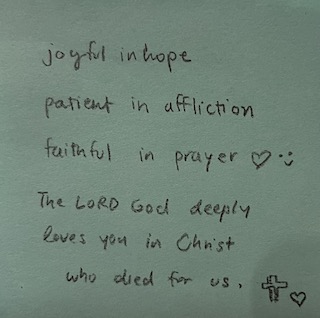 joyful in hope
patient in affliction
faithful in prayer ♡ :)
The LORD God deeply
loves you in Christ
who died for us. ✝ ♡